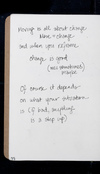 Moving is all about change
Move = change
and when you reframe
change is good
(was sometimes)
maybe
Of course it depends
on what your situation
is (if bad, anything
is a step up)